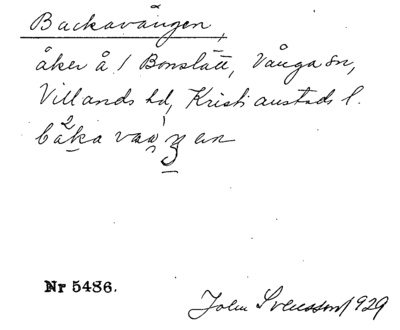 Backavången,
åker å 1 Bonslätt, Vånga sn,
Villands hd, Kristianstads l.
Nr 5486.
John Svensson 1929